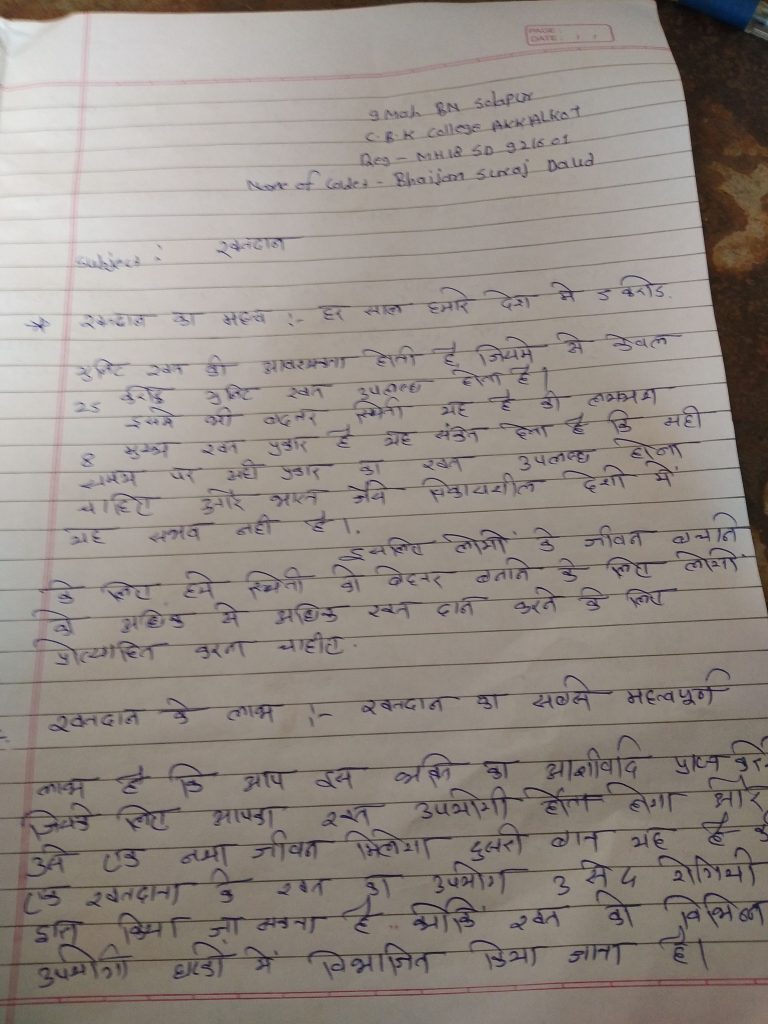 PAGE:
DATE:
9 Mah BN Solapur
C.B.K College AKKALKOT
Reg - MH18 SD 921601
Name of Cadet - Bhaijan Suraj Daud
Subject : रक्तदान
रक्तदान का महत्व :- हर साल हमारे देश मे 5 करोड
युनिट रक्त की आवश्यकता होती है, जिसमे से केवल
25 करोड युनिट रक्त उपलब्ध होता है।
इसमे भी बदतर स्थिती यह है की लगभग
8 मुख्य रक्त प्रकार है यह संकेत देता है कि सही
समय पर सही प्रकार का रक्त उपलब्ध होना
चाहिए और भारत जैसे विकासशील देशो में
यह संभव नही है।
इसलिए लोगों के जीवन बचाने
के लिए हमे स्थिती को बेहतर बनाने के लिए लोगों
को अधिक से अधिक रक्त दान करने के लिए
प्रोत्साहित करना चाहीए.
रक्तदान के लाभ :- रक्तदान का सबसे महत्वपूर्ण
लाभ है कि आप इस व्यक्ति का आशीर्वाद प्राप्त करे
जिसके लिए आपका रक्त उपयोगी होगा और
उसे एक नया जीवन मिलेगा दुसरी बात यह है की
एक रक्तदाता के रक्त का उपयोग 3 से रोगियो
किया जा सकता है क्योंकि रक्त को विभिन्न
उपयोगी घटकों में विभाजित किया जाता है।